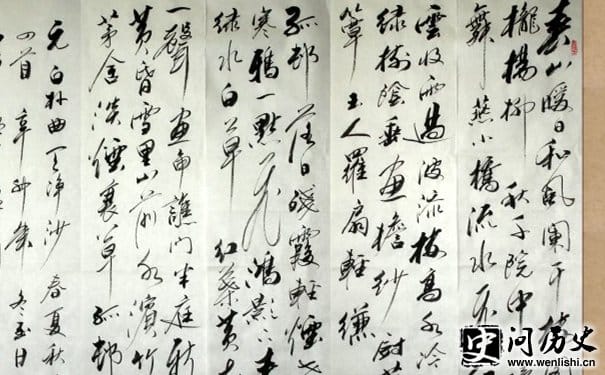 春山暖日和風闌干樓
櫳楊柳秋千院中
舞燕小橋流水飛
雲收雨過波添樓高水冷
綠樹陰垂畫檐紗廚
簟玉人羅扇輕縑
孤邨落日殘霞輕煙
寒鴉一點飛鴻影下
綠水白草紅葉黃
一聲畫角譙門半庭新
黃昏雪里山前水濱竹
茅舍淡煙衰草孤邨
元白朴曲天淨沙春夏秋
四首辛卯年冬至日
史问历史
www.wenlishi.cn